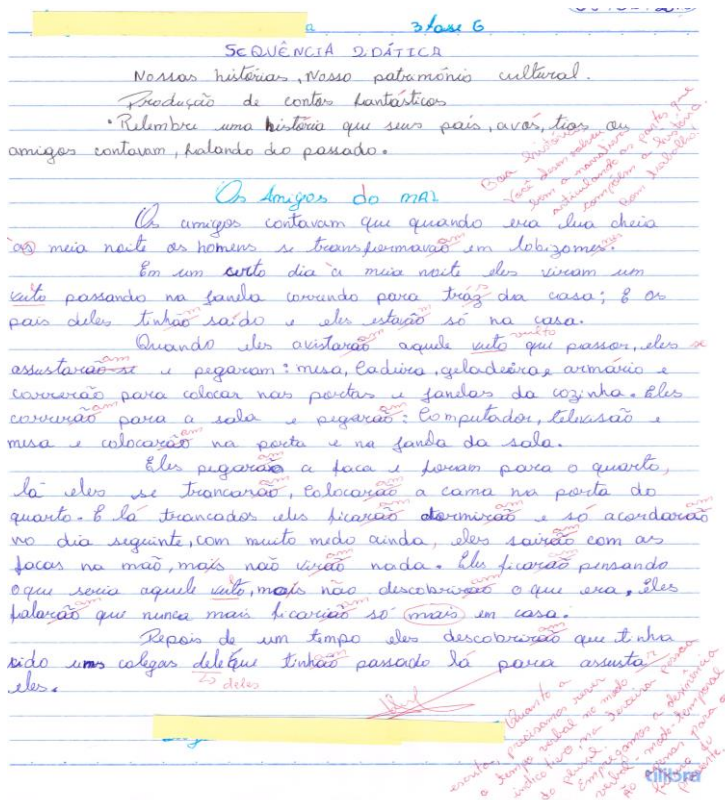 3 fase G
SEQUÊNCIA DIDÁTICA
Nossas histórias, Nosso patrimônio cultural.
Produção de contos fantásticos
• Relembre uma história que seus pais, avós, tios ou
amigos contavam, falando do passado.
Boa história!
Você desenvolveu
bem a narrativa
articulando as partes que
compõem a história.
Bom trabalho!
Os Amigos do MAL
Os amigos contavam que quando era lua cheia
as meia noite os homens se transformavão em lobizomes.
am
Em um certo dia a meia noite eles viram um
vuto passando na janela correndo para tráz da casa; E os
pais deles tinhão saído e eles estação só na casa.
am
Quando eles avistarão aquele vuto que passor, eles se
am vulto
assustarão-se e pegaram: mesa, Cadeira, geladeira e armário e
am
correrão para colocar nas portas e janelas da cozinha. Eles
am
correrão para a sala e pegarão: Computador, televisão e
am
mesa e colocarão na porta e na janela da sala.
am
Eles pegarão a faca e foram para o quarto,
am
lá eles se trancarão, Colocarão a cama na porta do
am
quarto. E lá trancados eles ficarão dormirão e só acordarão
am
no dia seguinte, com muito medo ainda, eles sairão com as
am
facas na mão, mais não virão nada. Eles ficarão pensando
am
oque seria aquele vuto, mais não descobrirão o que era, eles
am
falarão que nunca mais ficarião só mais em casa.
am
Depois de um tempo eles descobrirão que tinha
am
sido uns colegas deleque tinhão passado lá para assusta
am r
deles
eles.
Quanto a
escrita, precisamos rever
o tempo verbal no modo
indicativo, na terceira pessoa
do plural.
Empregamos a desinência
verbal modo temporal
ão apenas para o
futuro do
presente.
tilibra